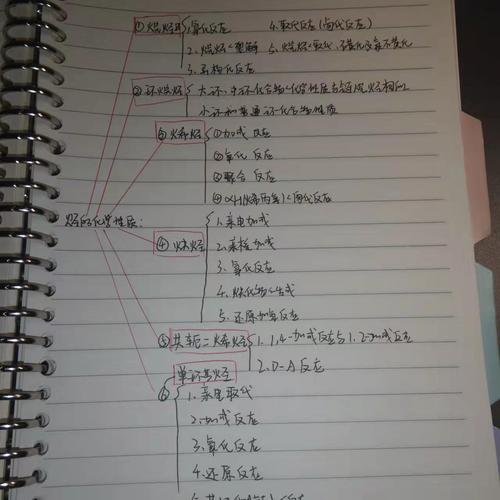 ①烷烃 1.氧化反应 4.取代反应(卤代反应)
2.烷烃<裂解 5.烷烃<取代、磺化及氯
3.异构化反应
②环烷烃 大环、中环化合物<化学性质与链烷烃相似
小环和普通环化合物性质
③烯烃 ①加成反应
②氧化反应
③聚合反应
④α-H(烯丙氢)<卤代反应
烃的化学性质:
④炔烃 1.亲电加成
2.亲核加成
3.氧化反应
4.炔化物<生成
5.还原加氢反应
⑤共轭二烯烃 1.1,4-加成反应与1,2-加成反应
2.D-A反应
⑥单环芳烃
1.亲电取代
2.加成反应
3.氧化反应
4.还原反应